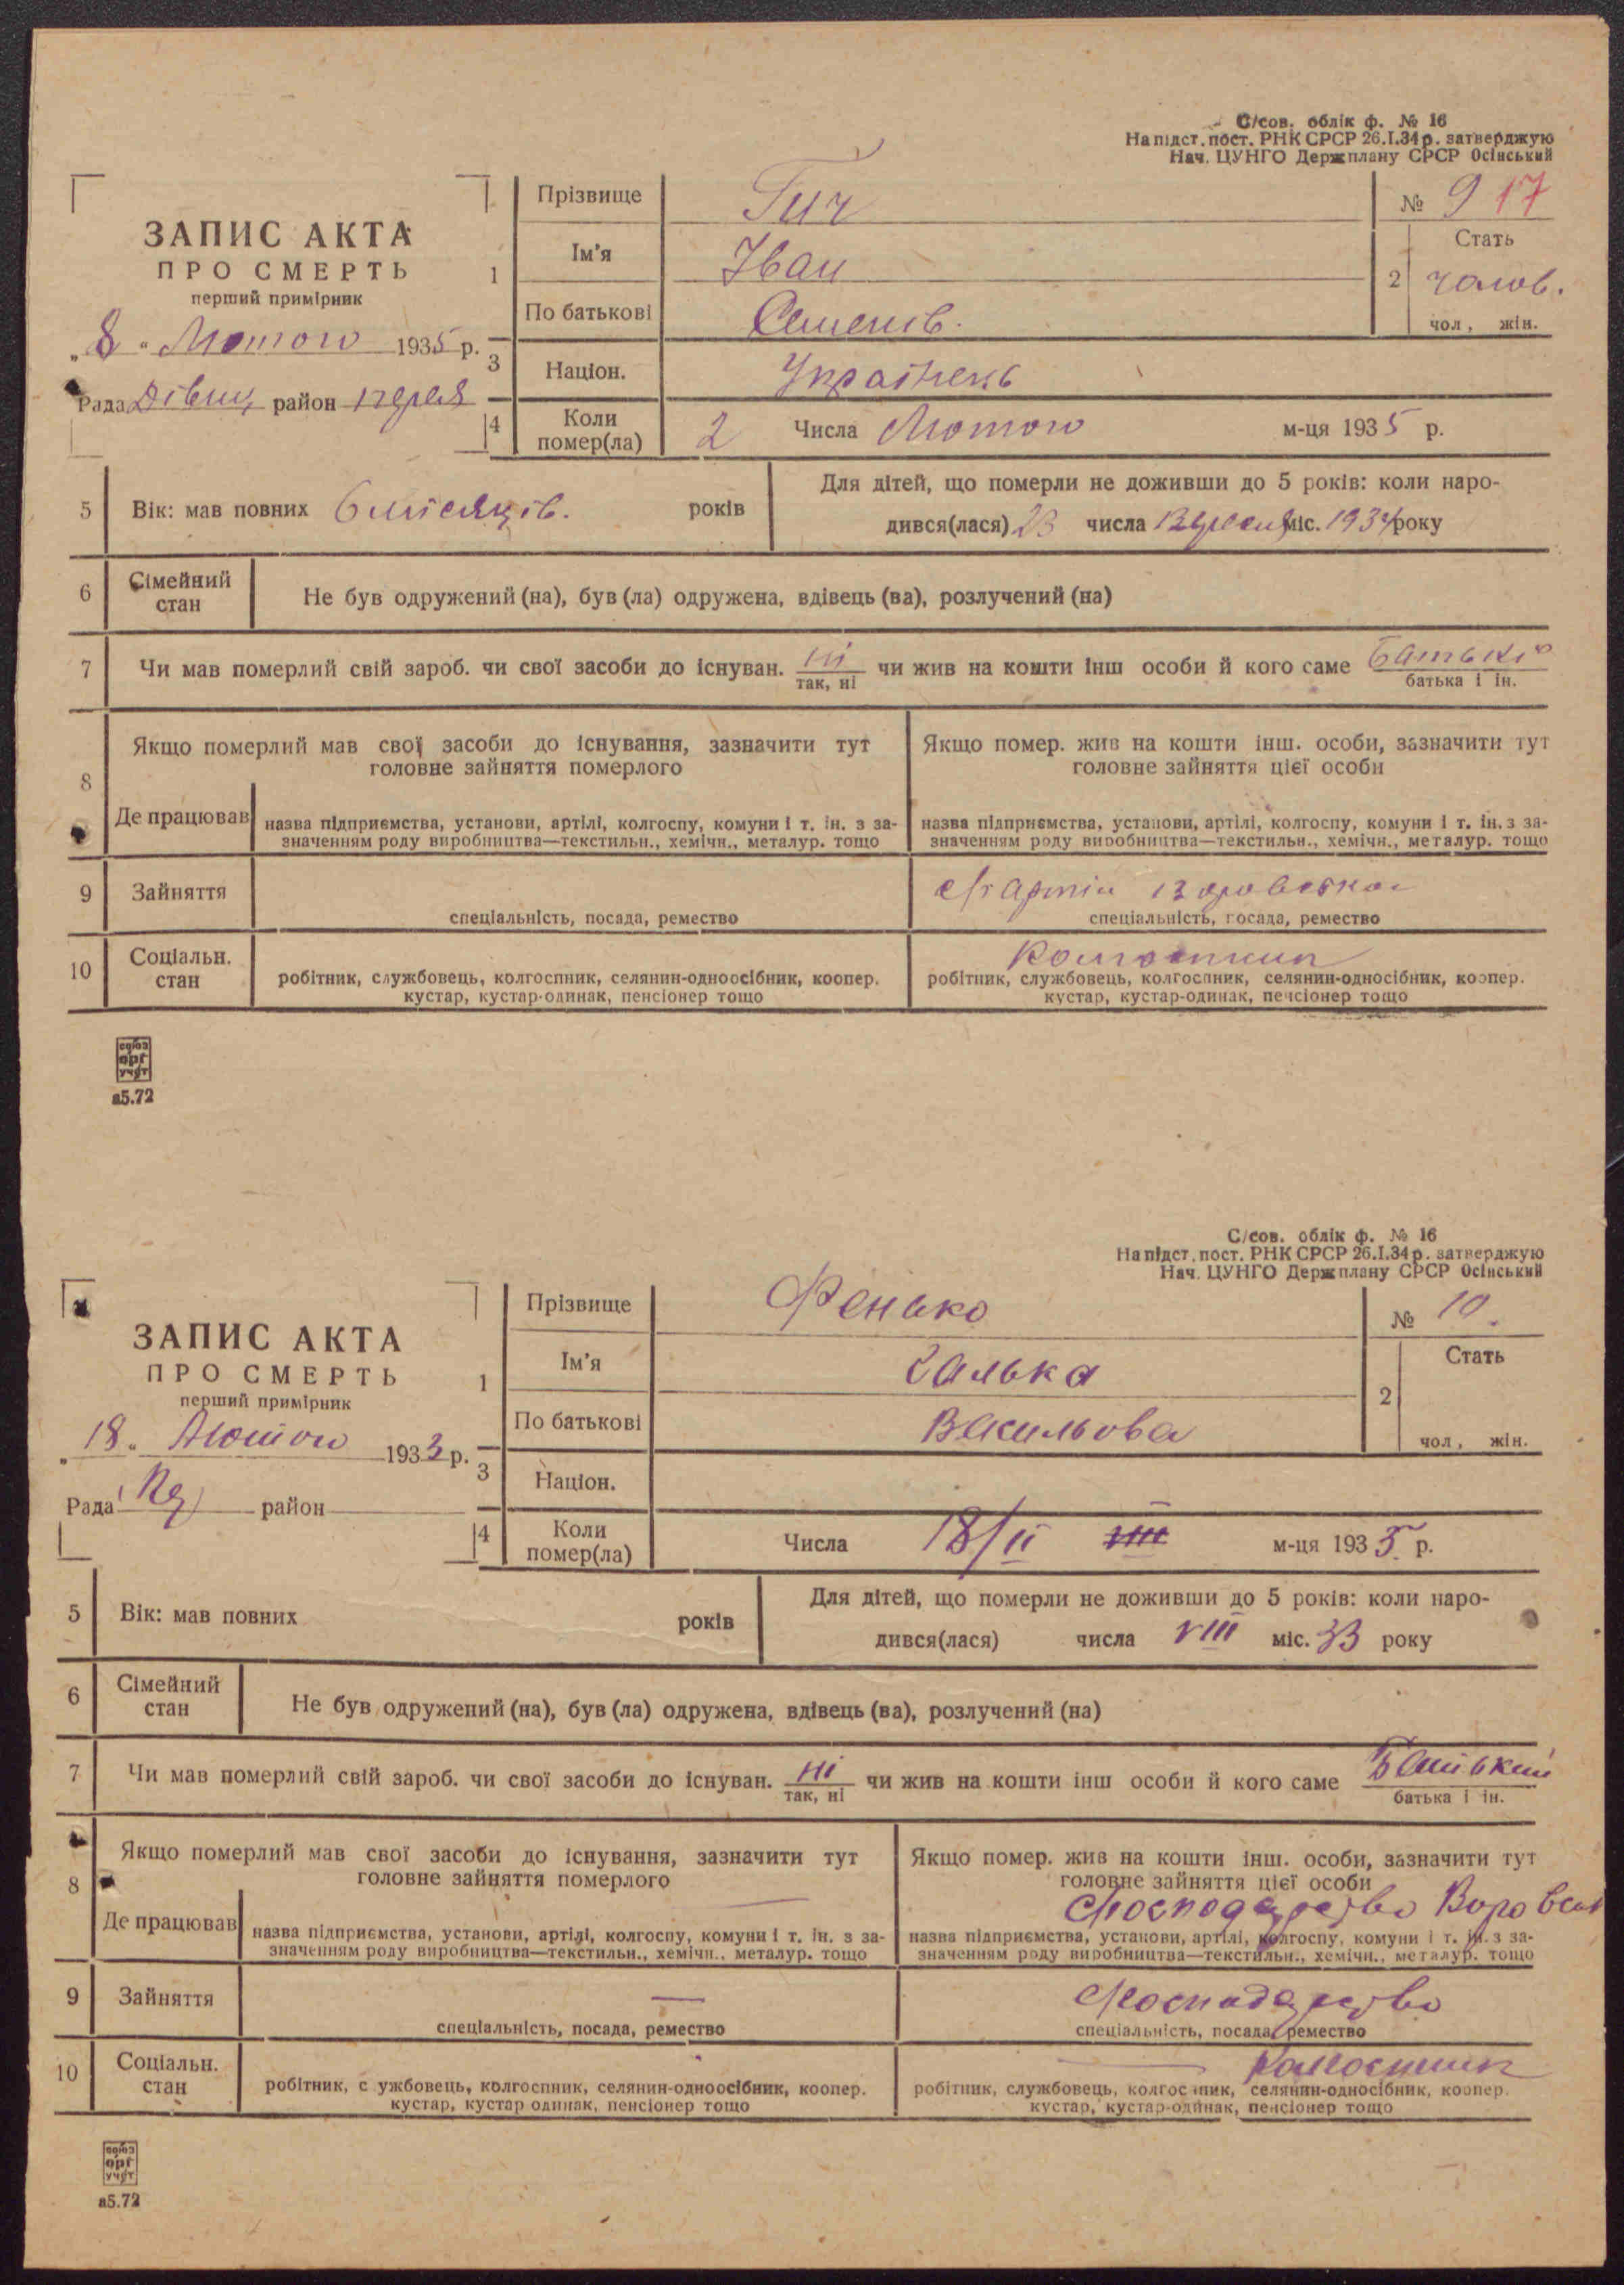 С/сов. облік ф. № 16
На підст. пост. РНК СРСР 26.I.34 р. затверджую
Нач. ЦУНГО Держплану СРСР Осінський
ЗАПИС АКТА
ПРО СМЕРТЬ
перший примірник
„8“ Лютого 1935 р.
Рада Дівич район Перея
1 Прізвище Гич
№ 9 17
Ім'я Іван
По батькові Семенів.
2 Стать чолов.
чол, жін.
3 Націон. Українець
4 Коли помер(ла) 2 Числа Лютого м-ця 1935 р.
5 Вік: мав повних 6 місяців. років
Для дітей, що померли не доживши до 5 років: коли наро-
дився(лася) 23 числа Вересня міс. 1934 року
6 Сімейний стан Не був одружений (на), був (ла) одружена, вдівець (ва), розлучений (на)
7 Чи мав померлий свій зароб. чи свої засоби до існуван. ні чи жив на кошти інш особи й кого саме Батьків
так, ні батька і ін.
8 Якщо померлий мав свої засоби до існування, зазначити тут
головне зайняття померлого
Якщо помер. жив на кошти інш. особи, зазначити тут
головне зайняття цієї особи
Де працював
назва підприємства, установи, артілі, колгоспу, комуни і т. ін. з за-
значенням роду виробництва—текстильн., хемічн., металур. тощо
назва підприємства, установи, артілі, колгоспу, комуни і т. ін. з за-
значенням роду виробництва—текстильн., хемічн., металур. тощо
9 Зайняття
спеціальність, посада, ремество
спеціальність, посада, ремество
10 Соціальн. стан
Колгоспник
робітник, службовець, колгоспник, селянин-одноосібник, коопер.
кустар, кустар-одинак, пенсіонер тощо
робітник, службовець, колгоспник, селянин-одноосібник, коопер.
кустар, кустар-одинак, пенсіонер тощо
союз
орг
учёт
а5.72
С/сов. облік ф. № 16
На підст. пост. РНК СРСР 26.I.34 р. затверджую
Нач. ЦУНГО Держплану СРСР Осінський
ЗАПИС АКТА
ПРО СМЕРТЬ
перший примірник
„18“ Лютого 1933 р.
Рада район
1 Прізвище Фенько
№ 10.
Ім'я Галька
По батькові Васильова
2 Стать
чол, жін.
3 Націон.
4 Коли помер(ла) Числа 18/II VIII м-ця 1935 р.
5 Вік: мав повних років
Для дітей, що померли не доживши до 5 років: коли наро-
дився(лася) числа VIII міс. 33 року
6 Сімейний стан Не був одружений (на), був (ла) одружена, вдівець (ва), розлучений (на)
7 Чи мав померлий свій зароб. чи свої засоби до існуван. ні чи жив на кошти інш особи й кого саме Батьки
так, ні батька і ін.
8 Якщо померлий мав свої засоби до існування, зазначити тут
головне зайняття померлого
Якщо помер. жив на кошти інш. особи, зазначити тут
головне зайняття цієї особи
Господарство
Де працював
назва підприємства, установи, артілі, колгоспу, комуни і т. ін. з за-
значенням роду виробництва—текстильн., хемічн., металур. тощо
назва підприємства, установи, артілі, колгоспу, комуни і т. ін. з за-
значенням роду виробництва—текстильн., хемічн., металур. тощо
9 Зайняття — Господарство
спеціальність, посада, ремество
спеціальність, посада, ремество
10 Соціальн. стан
Колгоспник
робітник, службовець, колгоспник, селянин-одноосібник, коопер.
кустар, кустар одинак, пенсіонер тощо
робітник, службовець, колгоспник, селянин-одноосібник, коопер.
кустар, кустар-одинак, пенсіонер тощо
союз
орг
учёт
а5.72